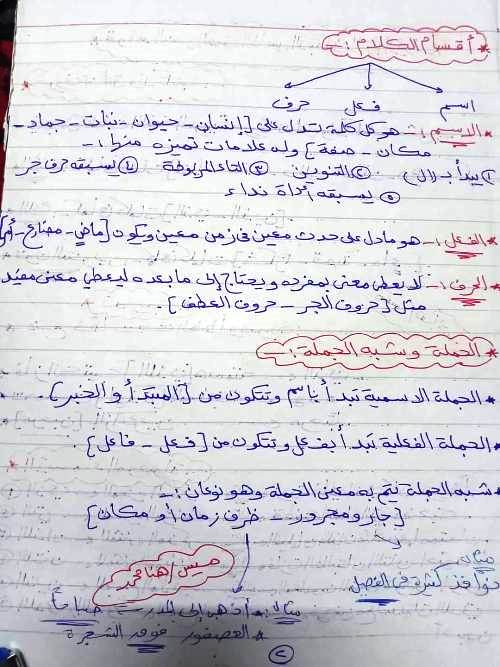 * أقسام الكلام :-
اسم فعل حرف
* الاسم :- هو كل كلمة تدل على [إنسان - حيوان - نبات - جماد -
مكان - صفة] وله علامات تميزه منها :-
١ يبدأ بـ (ال) ٢ التنوين ٣ التاء المربوطة ٤ يسبقه حرف جر
٥ يسبقه أداة نداء
* الفعل :- هو ما دل على حدث معين فى زمن معين ويكون [ماضٍ - مضارع - أمر]
* الحرف :- لا يعطى معنى بمفرده ويحتاج إلى ما بعده ليعطى معنى مفيد
مثل [حروف الجر - حروف العطف].
* الجملة وشبه الجملة :-
* الجملة الاسمية تبدأ باسم وتتكون من [المبتدأ والخبر].
* الجملة الفعلية تبدأ بفعل وتتكون من [فعل - فاعل].
* شبه الجملة يتم به معنى الجملة وهو نوعان :-
[جار ومجرور - ظرف زمان أو مكان]
مثال
نوافذ كثيرة فى الفصل
ميس / هنا محمد
مثال * أذهب إلى المدرسة صباحاً
* العصفور فوق الشجرة
٢